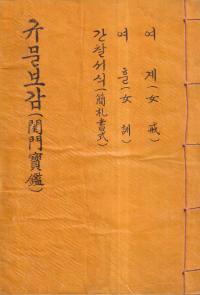 여계(女戒)
여훈(女訓)
간찰서식(簡札書式)
규문보감(閨門寶鑑)